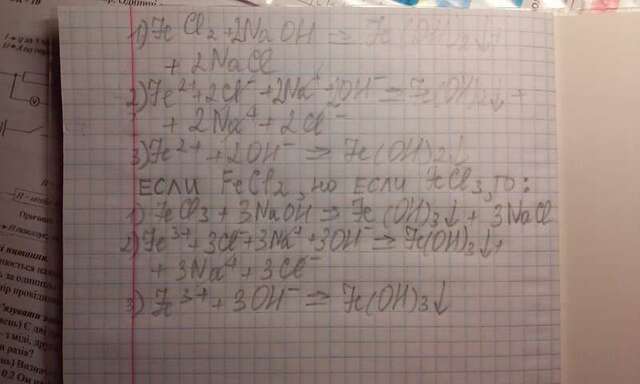 1) FeCl2 + 2NaOH => Fe(OH)2↓ +
+ 2NaCl
2) Fe²⁺ + 2Cl⁻ + 2Na⁺ + 2OH⁻ => Fe(OH)2↓ +
+ 2Na⁺ + 2Cl⁻
3) Fe²⁺ + 2OH⁻ => Fe(OH)2↓
Если FeCl2, но Если FeCl3, то:
1) FeCl3 + 3NaOH => Fe(OH)3↓ + 3NaCl
2) Fe³⁺ + 3Cl⁻ + 3Na⁺ + 3OH⁻ => Fe(OH)3↓ +
+ 3Na⁺ + 3Cl⁻
3) Fe³⁺ + 3OH⁻ => Fe(OH)3↓